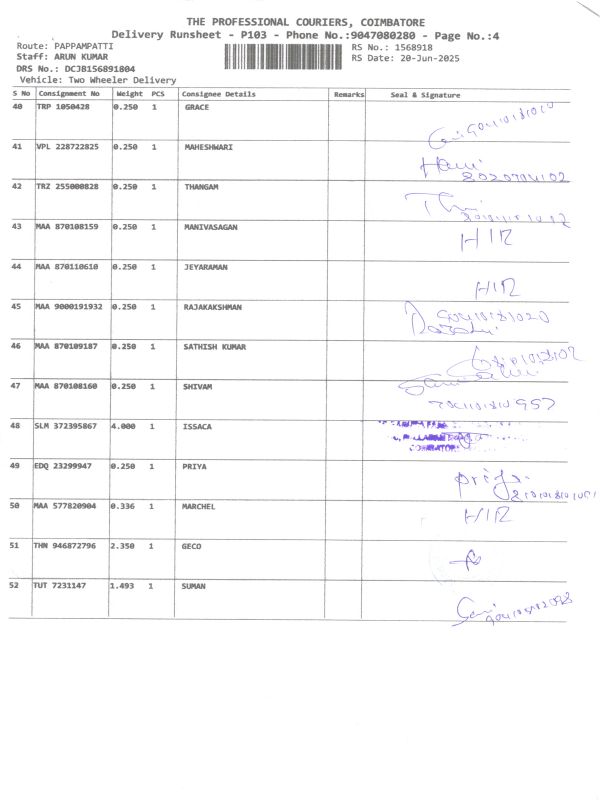 THE PROFESSIONAL COURIERS, COIMBATORE
Delivery Runsheet - P103 - Phone No.:9047080280 - Page No.:4
Route: PAPPAMPATTI
Staff: ARUN KUMAR
DRS No.: DCJ8156891804
Vehicle: Two Wheeler Delivery
RS No.: 1568918
RS Date: 20-Jun-2025
S No Consignment No Weight PCS Consignee Details Remarks Seal & Signature
40 TRP 1050428 0.250 1 GRACE
41 VPL 228722825 0.250 1 MAHESHWARI
42 TRZ 255000828 0.250 1 THANGAM
43 MAA 870108159 0.250 1 MANIVASAGAN HIR
44 MAA 870110610 0.250 1 JEYARAMAN HIR
45 MAA 9000191932 0.250 1 RAJAKAKSHMAN
46 MAA 870109187 0.250 1 SATHISH KUMAR
47 MAA 870108160 0.250 1 SHIVAM
48 SLM 372395867 4.000 1 ISSACA
49 EDQ 23299947 0.250 1 PRIYA
50 MAA 577820904 0.336 1 MARCHEL HIR
51 THN 946872796 2.350 1 GECO
52 TUT 7231147 1.493 1 SUMAN